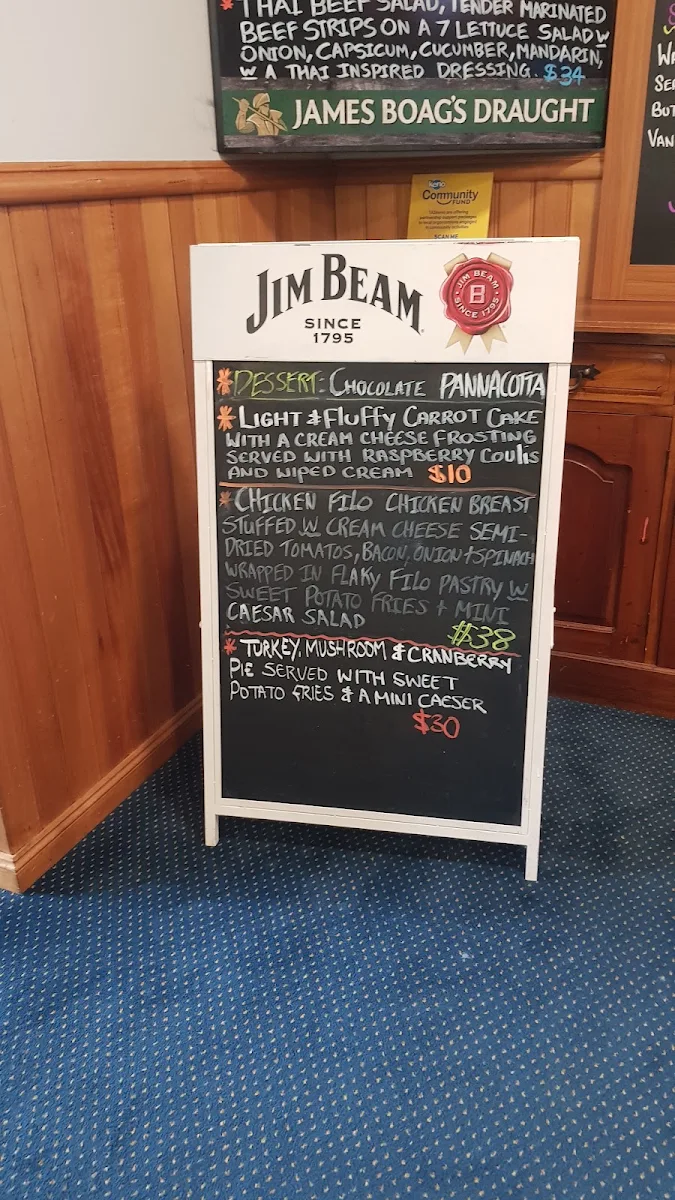 * THAI BEEF SALAD, TENDER MARINATED
BEEF STRIPS ON A 7 LETTUCE SALAD W
ONION, CAPSICUM, CUCUMBER, MANDARIN,
W A THAI INSPIRED DRESSING. $34
JAMES BOAG'S DRAUGHT
KENO
Community
FUND
SCAN ME
JIM BEAM
SINCE
1795
JIM BEAM
B
SINCE 1795
* DESSERT: CHOCOLATE PANNACOTTA
* LIGHT & FLUFFY CARROT CAKE
WITH A CREAM CHEESE FROSTING
SERVED WITH RASPBERRY COULIS
AND WIPED CREAM $10
* CHICKEN FILO CHICKEN BREAST
STUFFED W CREAM CHEESE SEMI-
DRIED TOMATOS, BACON, ONION + SPINACH
WRAPPED IN FLAKY FILO PASTRY W
SWEET POTATO FRIES + MINI
CAESAR SALAD
$38
* TURKEY, MUSHROOM & CRANBERRY
PIE SERVED WITH SWEET
POTATO FRIES & A MINI CAESER
$30